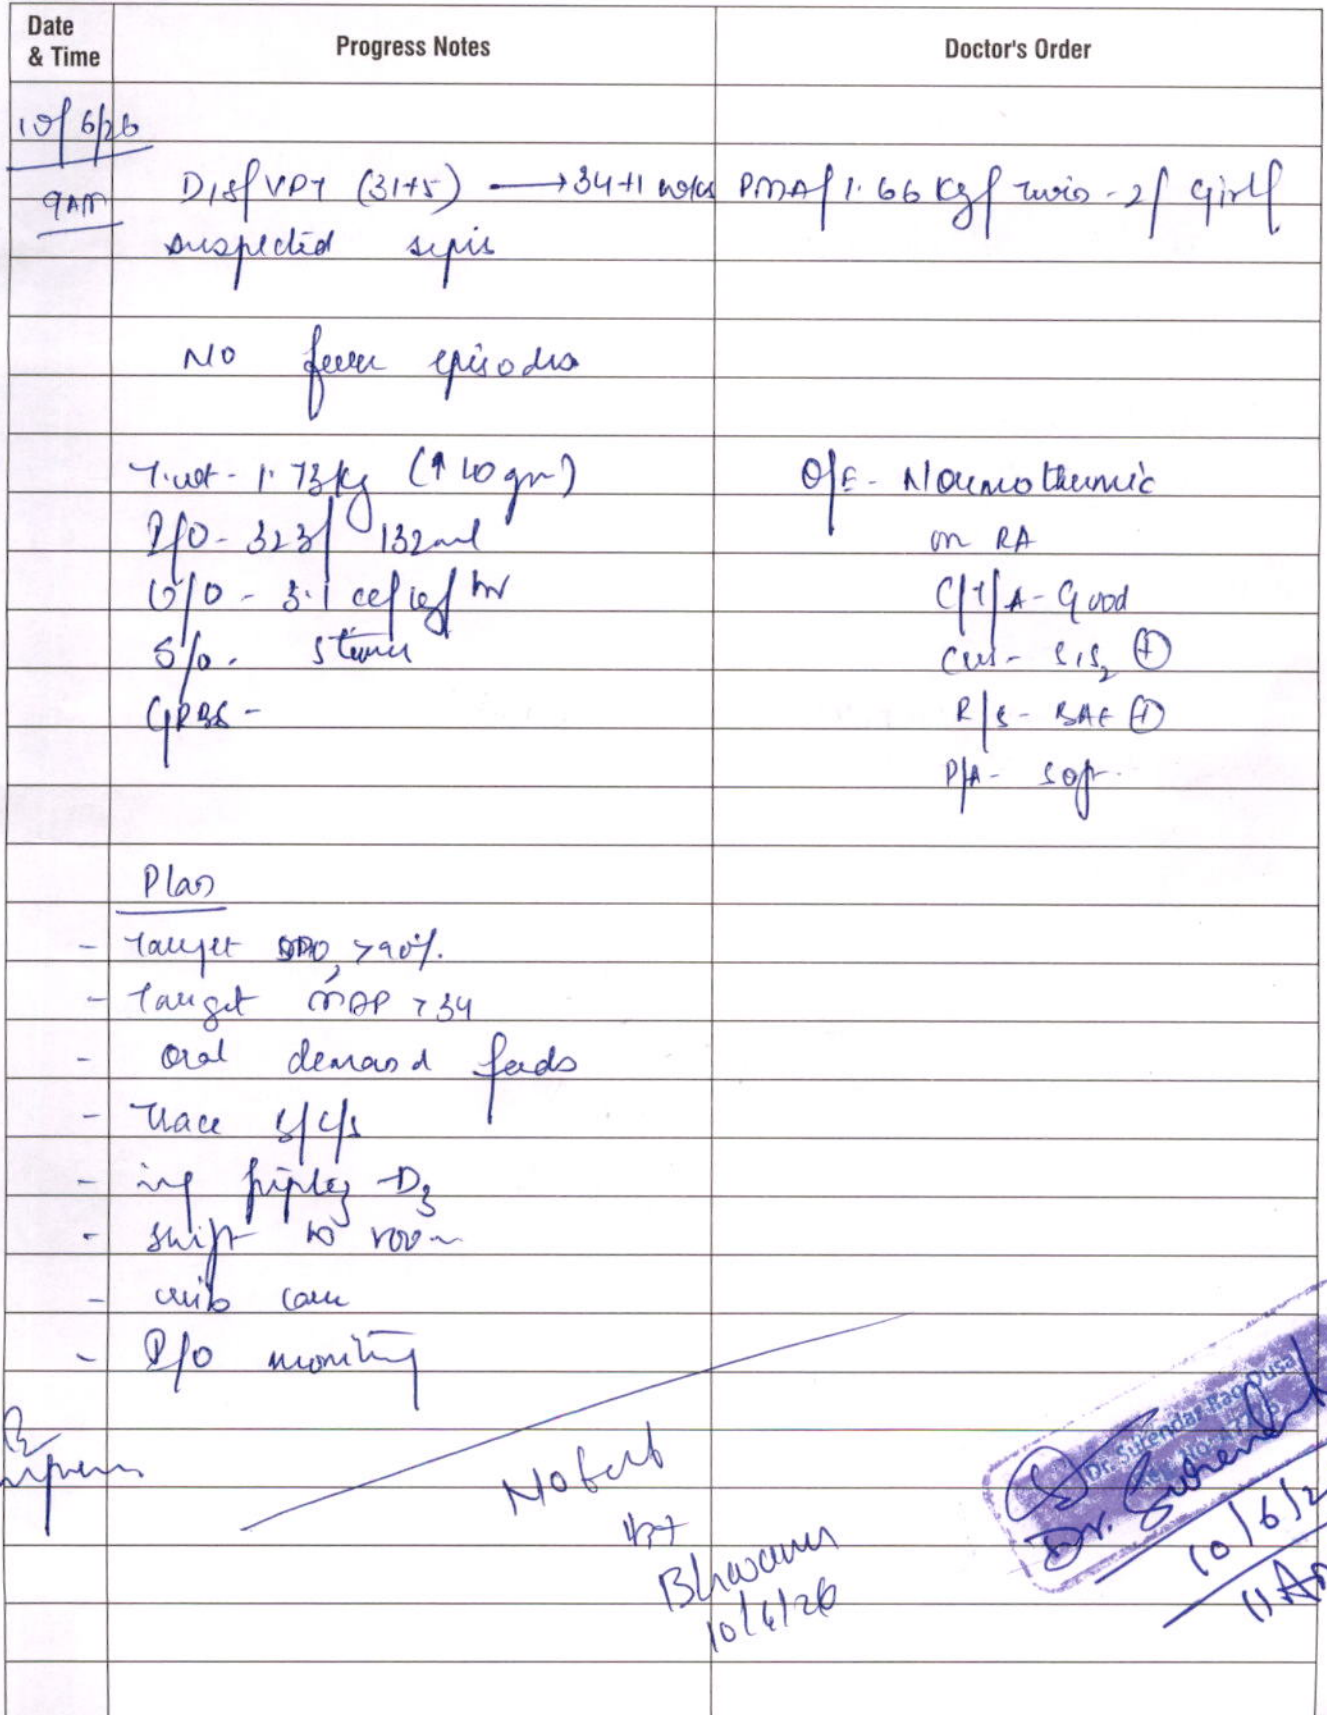 Date & Time Progress Notes Doctor's Order
10/6/26
9AM D18/VPT (31+5) → 34+1 weeks PMA/1.66 Kg/Twin-2/Girl
suspected sepsis
No fever episodes
T.wt - 1.73kg (↑ 10 gm)
I/O - 323/132ml
U/O - 3.1 cc/kg/hr
S/O - 5 times
GRBS -
O/E - Normothermic
on RA
C/T/A - Good
CVS - S1S2 ⊕
R/S - BAE ⊕
P/A - soft
Plan
- Target SPO2 >90%.
- Target MAP >34
- Oral demand feeds
- Trace
- inj piptaz - D3
- shift to room
- care
- I/O monitoring
Noted
Bhavani
10/6/26
Dr. Surendar Rao Dusa
Dr. Surendar
10/6/2
11AM